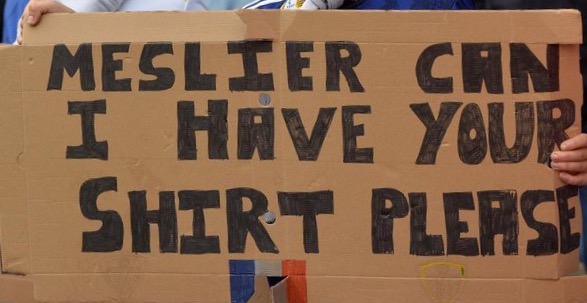 MESLIER CAN
I HAVE YOUR
SHIRT PLEASE